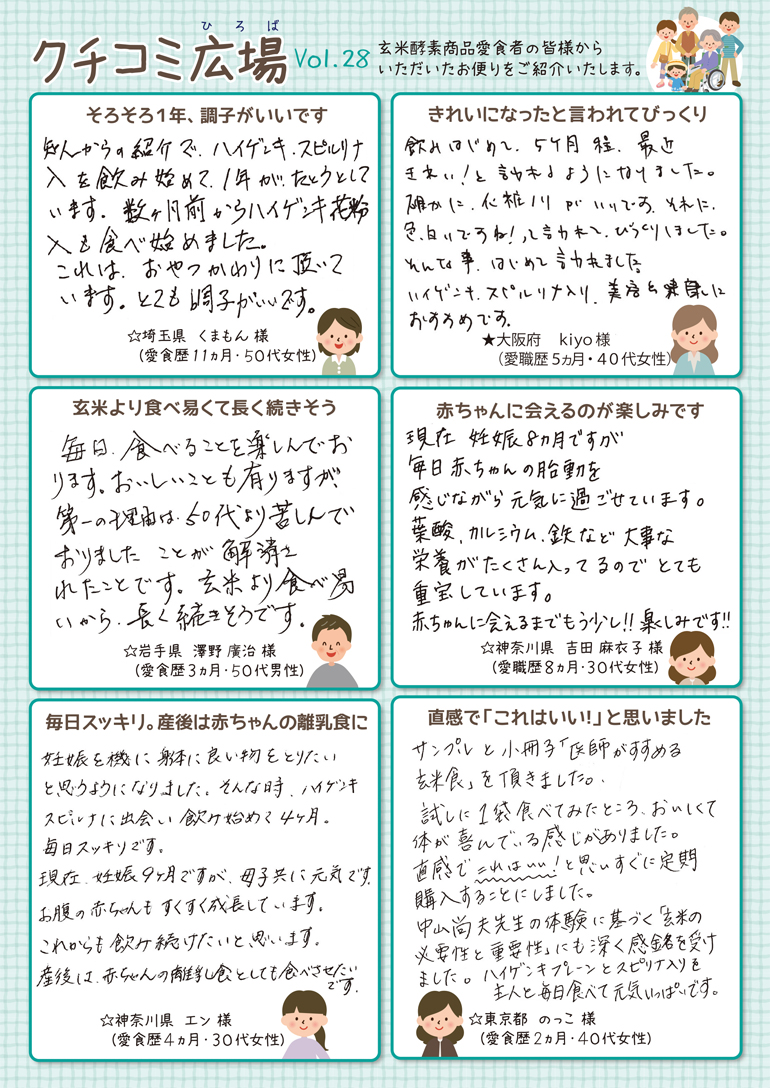 ひろば
クチコミ広場 Vol.28
玄米酵素商品愛食者の皆様から
いただいたお便りをご紹介いたします。
そろそろ1年、調子がいいです
知人からの紹介で、ハイゲンキ、スピルリナ
入を飲み始めて、1年が、たとうとして
います。数ヶ月前からハイゲンキ花粉
入も食べ始めました。
これは、おやつかわりに頂いて
います。とても調子がいいです。
☆埼玉県 くまもん 様
(愛食歴11ヵ月・50代女性)
きれいになったと言われてびっくり
飲みはじめて、5ヶ月程、最近
きれい!と言われるようになりました。
確かに、化粧ノリがいいです。それに、
色白いですね!、って言われて、びっくりしました。
そんな事、はじめて言われました
ハイゲンキ、スピルリナ入り、美容と健康に
おすすめです。
★大阪府 kiyo 様
(愛職歴5ヵ月・40代女性)
玄米より食べ易くて長く続きそう
毎日、食べることを楽しんでお
ります。おいしいことも有りますが
第一の理由は、50代より苦しんで
おりました ことが 解消さ
れたことです。玄米より食べ易
いから、長く続きそうです。
☆岩手県 澤野 廣治 様
(愛食歴3ヵ月・50代男性)
赤ちゃんに会えるのが楽しみです
現在 妊娠8ヵ月ですが
毎日赤ちゃんの胎動を
感じながら元気に過ごせています。
葉酸、カルシウム、鉄など大事な
栄養がたくさん入ってるのでとても
重宝しています。
赤ちゃんに会えるまでもう少し!!楽しみです!!
☆神奈川県 吉田 麻衣子 様
(愛職歴8ヵ月・30代女性)
毎日スッキリ。産後は赤ちゃんの離乳食に
妊娠を機に身体に良い物をとりたい
と思うようになりました。そんな時、ハイゲンキ
スピルリナに出会い飲み始めて4ヶ月。
毎日スッキリです。
現在、妊娠9ヶ月ですが、母子共に元気です。
お腹の赤ちゃんもすくすく成長しています。
これからも飲み続けたいと思います。
産後は、赤ちゃんの離乳食としても食べさせたい
です。
☆神奈川県 エン 様
(愛食歴4ヵ月・30代女性)
直感で「これはいい!」と思いました
サンプルと小冊子「医師がすすめる
玄米食」を頂きました。
試しに1袋食べてみたところ、おいしくて
体が喜んでいる感じがありました。
直感でこれはいい!と思いすぐに定期
購入することにしました。
中山尚夫先生の体験に基づく「玄米の
必要性と重要性」にも深く感銘を受け
ました。ハイゲンキプレーンとスピリナ入りを
主人と毎日食べて元気いっぱいです。
☆東京都 のっこ 様
(愛食歴2ヵ月・40代女性)